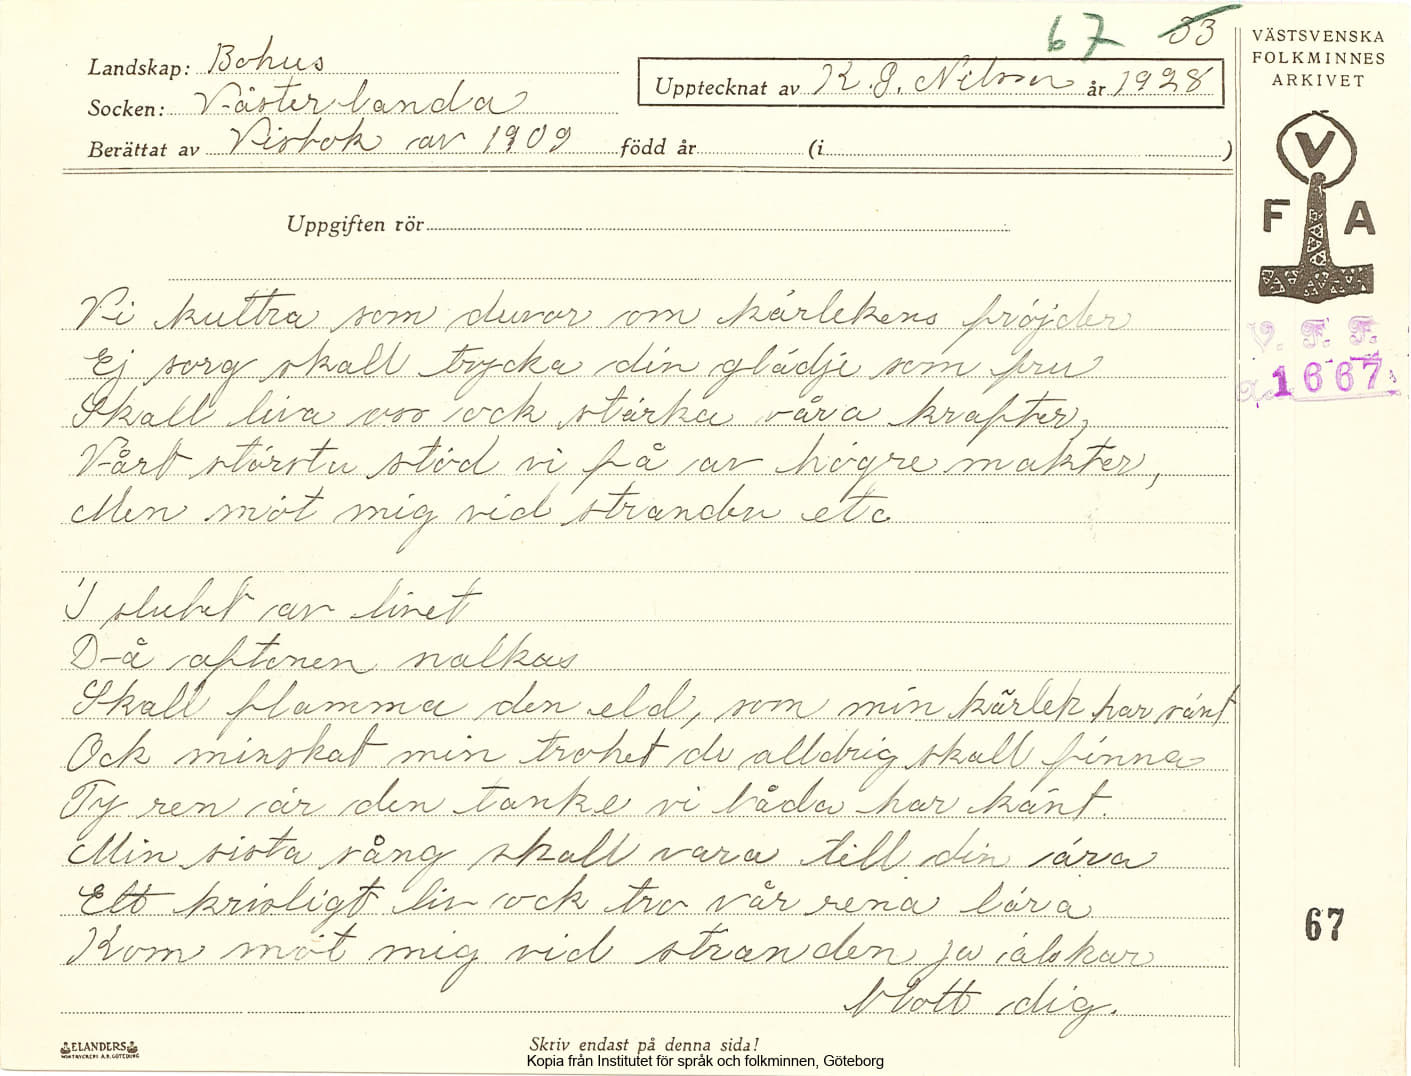 67 33
Landskap: Bohus
Socken: Västerlanda
Berättat av Visbok av 1909 född år (i )
Upptecknat av K. G. Nilson år 1928
VÄSTSVENSKA
FOLKMINNES
ARKIVET
V
F A
V. F. F.
1667
Uppgiften rör
Vi kuttra som duvor om kärlekens fröjder
Ej sorg skall trycka din glädje som fru
Skall liva oss ock stärka våra krafter,
Vårt största stöd vi få av högre makter,
Men möt mig vid stranden etc
I slutet av livet
Då aftonen nalkas
Skall flamma den eld, som min kärlek har vänt
Ock minskat min trohet du alldrig skall finna
Ty ren är den tanke vi båda har känt.
Min sista sång skall vara till din ära
Ett krisligt liv ock tro vår rena lära
Kom möt mig vid stranden ja älskar
blott dig.
67
ELANDERS
BOKTRYCKERI A.B. GÖTEBORG
Skriv endast på denna sida!
Kopia från Institutet för språk och folkminnen, Göteborg